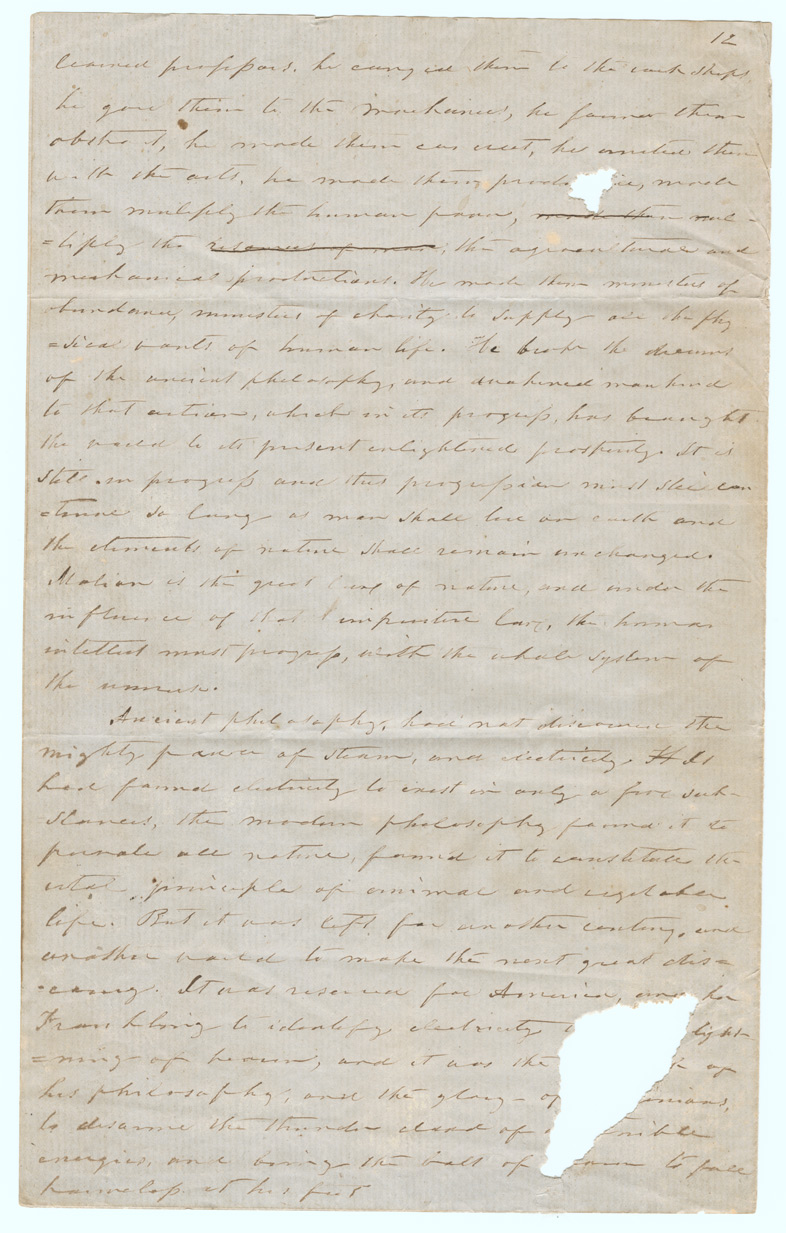 12
learned professors. he carried them to the work shops.
he gave them to the mechanics, he found them
abstract, he made them concrete, he united them
with the arts. he made them prod ive, made
them multiply the human power, made them mul-
=tiply the resources of man, the agricultural and
mechanical productions. He made them ministers of
abundance, ministers of charity to supply all the phy
=sical wants of human life. He broke the dreams
of the ancient philosophy, and awakened mankind
to that action, which in its progress, has brought
the world to its present enlightened prosperity. It is
still in progress and this progression must still con
=tinue so long as man shall live on earth and
the elements of nature shall remain unchanged.
Motion is the great law of nature, and under the
influence of that imperative law, the human
intellect must progress, with the whole system of
the universe.
Ancient philosophy, had not discovered the
mighty power of steam, and electricity. It
had found electricity to exist in only a few sub-
stances, the modern philosophy found it to
pervade all nature, found it to constitute the
vital principle of animal and vegetable
life. But it was left for another century, and
another world to make the next great dis=
=covery. It was reserved for America, and her
Franklin, to identify electricity light-
=ning of heaven, and it was the of
his philosophy, and the glory of
to disarm the thunder cloud of terrible
energies, and bring the bolt of to fall
harmless at his feet